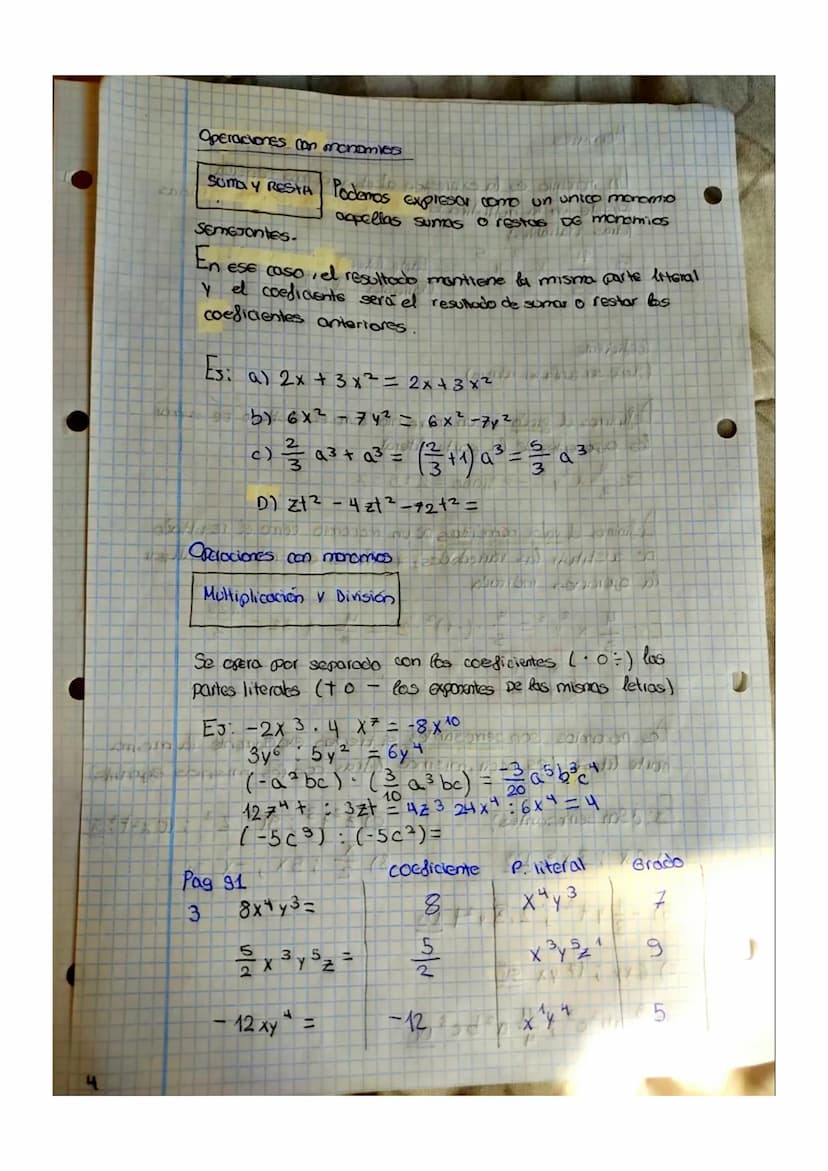 Operaciones con monomios
SUMA Y RESTA Podemos expresar como un unico monomio
aquellas sumas o restas DE monomios
semejantes.
En ese caso, el resultado mantiene la misma parte literal
y el coeficiente será el resultado de sumar o restar los
coeficientes anteriores.
Ej: a) 2x + 3x² = 2x + 3x²
b) 6x² - 7y² = 6x² - 7y²
c) 2/3 a³ + a³ = (2/3 + 1) a³ = 5/3 a³
D) zt² - 4zt² - 12t² =
Operaciones con monomios
Multiplicación y División
Se opera por separado con los coeficientes (· o ÷) las
partes literales (+ o - los exponentes de las mismas letras)
Ej: -2x³ · 4 x⁷ = -8x¹⁰
3y⁶ : 5y² = 6y⁴
(-a²bc) · (3/10 a³bc) = -3/20 a⁵b³c⁴
12z⁴t : 3zt = 4z³ 24x⁴ : 6x⁴ = 4
(-5c³) : (-5c²) =
Pag 91 coeficiente P. literal Grado
3 8x⁴y³ = 8 x⁴y³ 7
5/2 x³y⁵z = 5/2 x³y⁵z¹ 9
-12xy⁴ = -12 x¹y⁴ 5
4